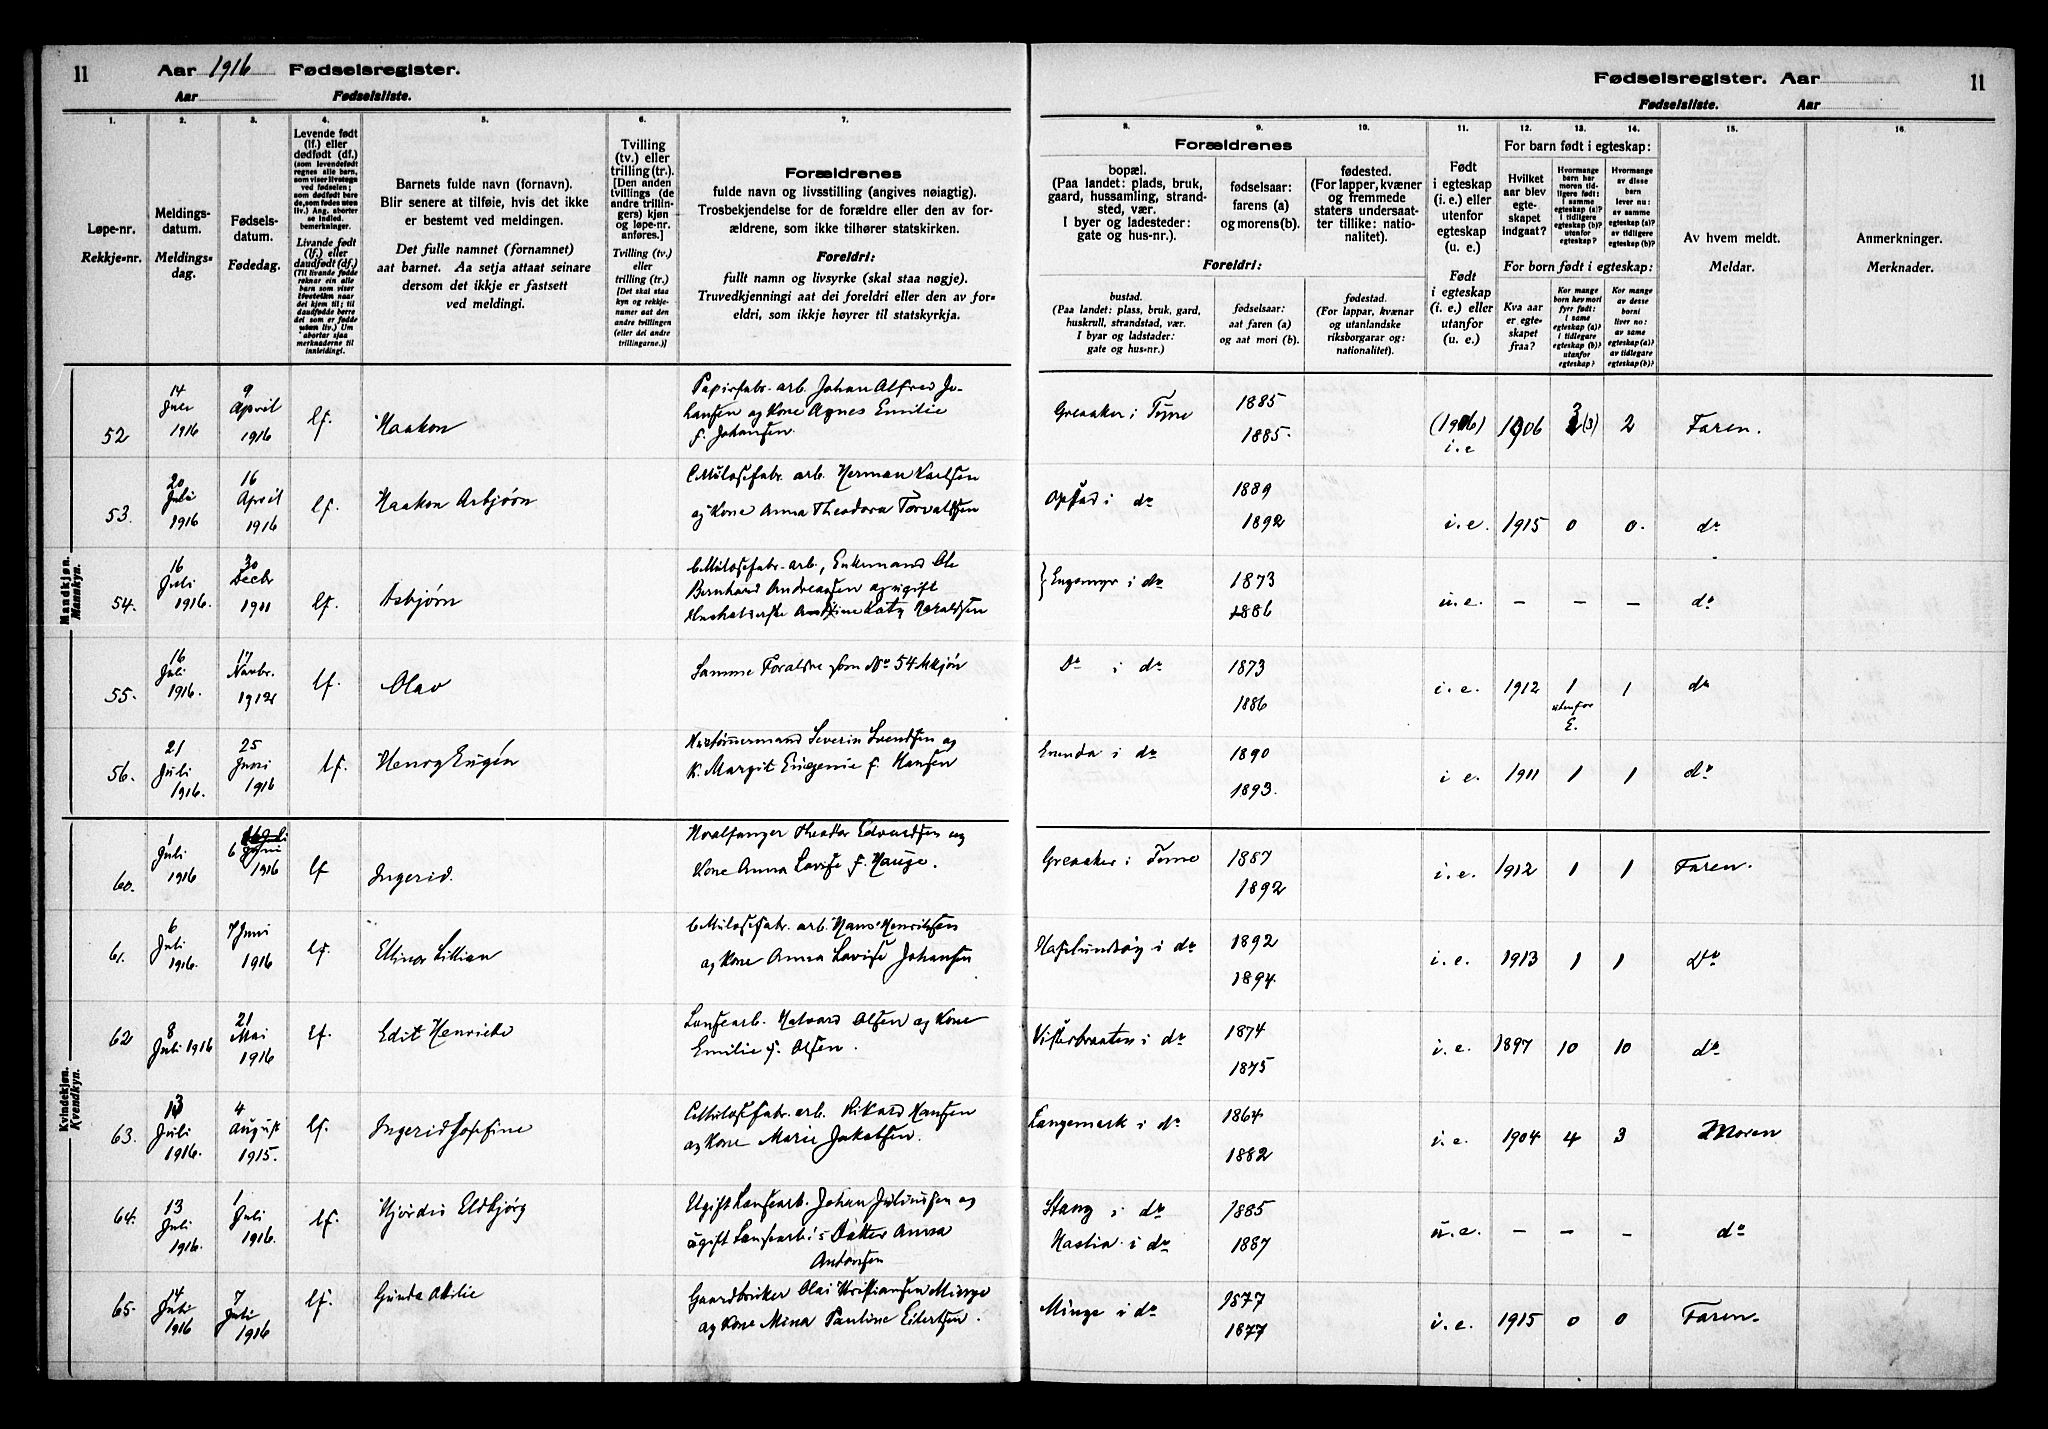 11
Aar 1916 Fødselsregister.
Aar Fødselsliste.
Fødselsregister. Aar
11
Fødselsliste. Aar
1.
Løpe-nr.
Rekkje-nr.
2.
Meldings-
datum.
Meldings-
dag.
3.
Fødsels-
datum.
Fødedag.
4.
Levende født
(lf.) eller
dødfødt (df.)
(som levendefødt
regnes alle barn,
som viser livstegn
ved fødselen;
som dødfødt bare
de, som fødes uten
liv.) Ang. aborter
se indled.
bemerkninger.
Livande født
(lf.) eller
daudfødt (df.)
5.
Barnets fulde navn (fornavn).
Blir senere at tilføie, hvis det ikke
er bestemt ved meldingen.
Det fulle namnet (fornamnet)
aat barnet. Aa setja attaat seinare
dersom det ikkje er fastsett
ved meldingi.
6.
Tvilling
(tv.) eller
trilling (tr.).
[Den anden
tvillings (de
andre trillin-
gers) kjøn
og løpe-nr.
anføres.]
Tvilling (tv.)
eller
trilling (tr.)
[Det skal staa
kyn og rekkje-
numer aat den
andre tvillingen
(eller dei andre
trillingarne.)]
7.
Forældrenes
fulde navn og livsstilling (angives nøiagtig).
Trosbekjendelse for de forældre eller den av for-
ældrene, som ikke tilhører statskirken.
Foreldri:
fullt namn og livsyrke (skal staa nøgje).
Truvedkjenningi aat dei foreldri eller den av for-
eldri, som ikkje høyrer til statskyrkja.
8.
Forældrenes
bopæl.
(Paa landet: plads, bruk,
gaard, hussamling, strand-
sted, vær.
I byer og ladesteder:
gate og hus-nr.).
9.
fødselsaar:
farens (a)
og morens (b).
10.
fødested.
(For lapper, kvæner
og fremmede
staters undersaat-
ter tillike: natio-
nalitet).
Foreldri:
bustad.
(Paa landet: plass, bruk, gard,
huskrull, strandstad, vær.
I byar og ladstader:
gate og hus-nr.)
fødselsaar:
aat faren (a)
og aat mori (b).
fødestad.
(For lappar, kvænar
og utanlandske
riksborgarar og:
nationalitet).
11.
Født
i egteskap
(i. e.) eller
utenfor
egteskap
(u. e.)
Født
i egteskap
(i. e.) eller
utanfor
(u. e.)
12. 13. 14.
For barn født i egteskap:
Hvilket
aar blev
egte-
skapet
indgaat?
Hvormange
barn har
moren tid-
ligere født:
i samme
egteskap (a)?
i tidligere
egteskap (b)?
utenfor
egteskap?
Hvormange
av disse
barn
lever nu:
av samme
egteskap (a)?
av tidligere
egteskap (b)?
For born født i egteskap:
Kva aar
er egte-
skapet
fraa?
Kor mange
born hev mori
fyrr født:
i same
egteskap (a)?
i tidlegare
egteskap (b)?
utanfor
egteskap?
Kor mange
av desse
borni
liver no:
av same
egteskap (a)?
av tidlegare
egteskap (b)?
15.
Av hvem meldt.
Meldar.
16.
Anmerkninger.
Merknader.
Mandkjøn.
Mannkyn.
52 14 Juli 1916 9 April 1916 lf. Haakon
Papirfabr. arb. Johan Alfred Jo-
hansen og Kone Agnes Emilie
f. Johansen.
Greaaker i Tune 1885 1885. i. e 1906 (3) 2 Faren.
53. 20 Juli 1916 16 April 1916 lf. Haakon Asbjørn
Cellulosefabr. arb. Herman Karlsen
og Kone Anna Theodora Torvaldsen
Opstad i do 1889 1892 i. e. 1915 0 0. do
54. 16 Juli 1916. 30 Decbr 1911 lf. Asbjørn
Cellulosefabr. arb., Enkemand Ole
Bernhard Andreassen og ugift
Haraldsen
Engemyr i do 1873 1886 u. e. – – – do
55. 16 Juli 1916. 17 Novbr. 1912 lf. Olav
Samme Forældre som No 54 Mkjøn
Do i do 1873 1886 i. e. 1912 1 utenfor E. 1 do
56. 21 Juli 1916. 25 Juni 1916 lf. Henry Eugén
Hustømmermand Severin Svendsen og
K. Margit Eugenie f. Hansen
i do 1890 1893. i e. 1911 1 1 do
Kvindekjøn.
Kvendkyn.
60. 1 Juli 1916 6 1916 lf Ingerid.
Hvalfanger Theodor Edvardsen og
Kone Anna Lovise f. Hauge.
Greaaker i Tune 1887 1892 i. e. 1912 1 1 Faren.
61. 6 Juli 1916. 7 Juni 1916 lf. Ellinor Lillian
Cellulosefabr. arb. Hans Henriksen
og Kone Anna Lovise Johansen
Haslundsøy i do 1892 1894. i. e. 1913 1 1 Do
62 8 Juli 1916 21 Mai 1916 lf. Edit Henrikke
Løsearb. Halvard Olsen og Kone
Emilie f. Olsen.
Visterbraaten i do 1874 1875 i. e. 1897 10 10 do
63. 13 Juli 1916. 4 August 1915. lf. Ingerid Josefine
Cellulosefabr. arb. Rikard Hansen
og Kone Marie Jakobsen.
Langemark i do 1864 1882 i. e. 1904 4 3 Moren
64. 13 Juli 1916. 1 Juli 1916. lf. Hjørdis Eldbjørg
Ugift Løsearb. Johan Juliussen og
ugift Løsearb.'s Datter Anna
Antonsen
Stang i do Hastia i do 1885 1887 u. e. – – – do
65. 14 Juli 1916 7 Juli 1916 lf. Gunda Otilie
Gaardbruker Olai Kristiansen Minge
og Kone Mina Pauline Eilertsen.
Minge i do 1877 1877 i. e. 1915 0 0 Faren.